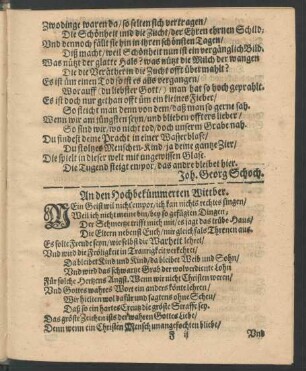 Zwo dinge waren da / so selten sich vertragen /
Die Schönheit und die Zucht / der Ehren ehrnen Schild,
Und dennoch fällt sie hin in ihren schönsten Tagen /
Diß macht / weil Schönheit nur ist ein vergänglich Bild.
Was nützt der glatte Hals? was nützt die Milch der wangen
Die die Verätherin die Zucht offt übermahlt?
Es ist um einen Tod so ist es alls vergangen /
Worauff / du liebster Gott / man hat so hoch geprahlt.
Es ist doch nur gethan offt üm ein kleines Fieber /
So steigt man denn von dem / daß man so gerne sah.
Wenn wir am jüngsten seyn / und blieben offters lieber /
So sind wir / wo nicht todt / doch unserm Grabe nah.
Du findest deine Pracht in einer Wasserblase /
Du stoltzes Menschen-Kind / ja deine gantze Zier /
Die spielt in dieser welt mit ungewissen Glase.
Die Tugend steigt empor, das andre bleibet hier.
Joh. Georg Schoch.
An den Hochbekümmerten Wittber.
MEin Geist wil nicht empor, ich kan nichts rechtes singen /
Weil ich nicht meine bin, bey so gefälgten Dingen /
Der Schmertze trifft mich mit / es jagt das trübe Haus /
Die Eltern nebenst Euch / mir gleichfals Threnen aus.
Es solte Freude seyn / wie selbst die Warheit lehret /
Und wird die Frölig keit in Traurigkeit verkehret /
Da bleibet Kind und Kind / da bleibet Weib und Sohn /
Und wird das schwartze Grab der wolverdiente Lohn
Für solche Hertzens Angst. Wenn wir nicht Christen weren /
Und Gottes wahres Wort ein anders könte lehren /
Wir hielten wol dafür und sagtens ohne Scheu /
Daß so ein hartes Creutz die gröste Straffe sey.
Das gröste Zeichen ists der wahren Gottes Liebe /
Denn wenn ein Christen Mensch unangefochten bliebe /
F ij
Und